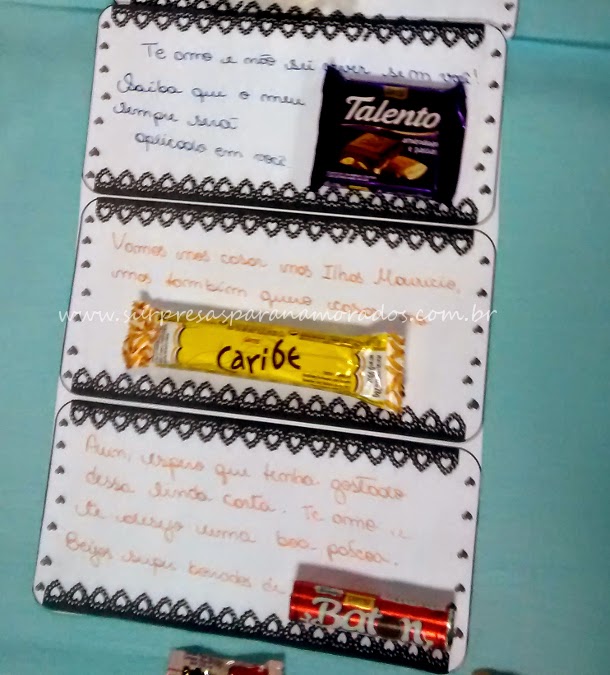 Te amo e não sei viver sem você!
Saiba que o meu
sempre será
aplicado em você
Talento
amêndoas
e passas
Vamos nos casar nas Ilhas Mauricio,
mas também quero
www.surpresasparanamorados.com.br
Caribe
espero que tenha gostado
dessa linda carta. Te amo e
te desejo uma boa páscoa.
Beijos super borrados de
Baton